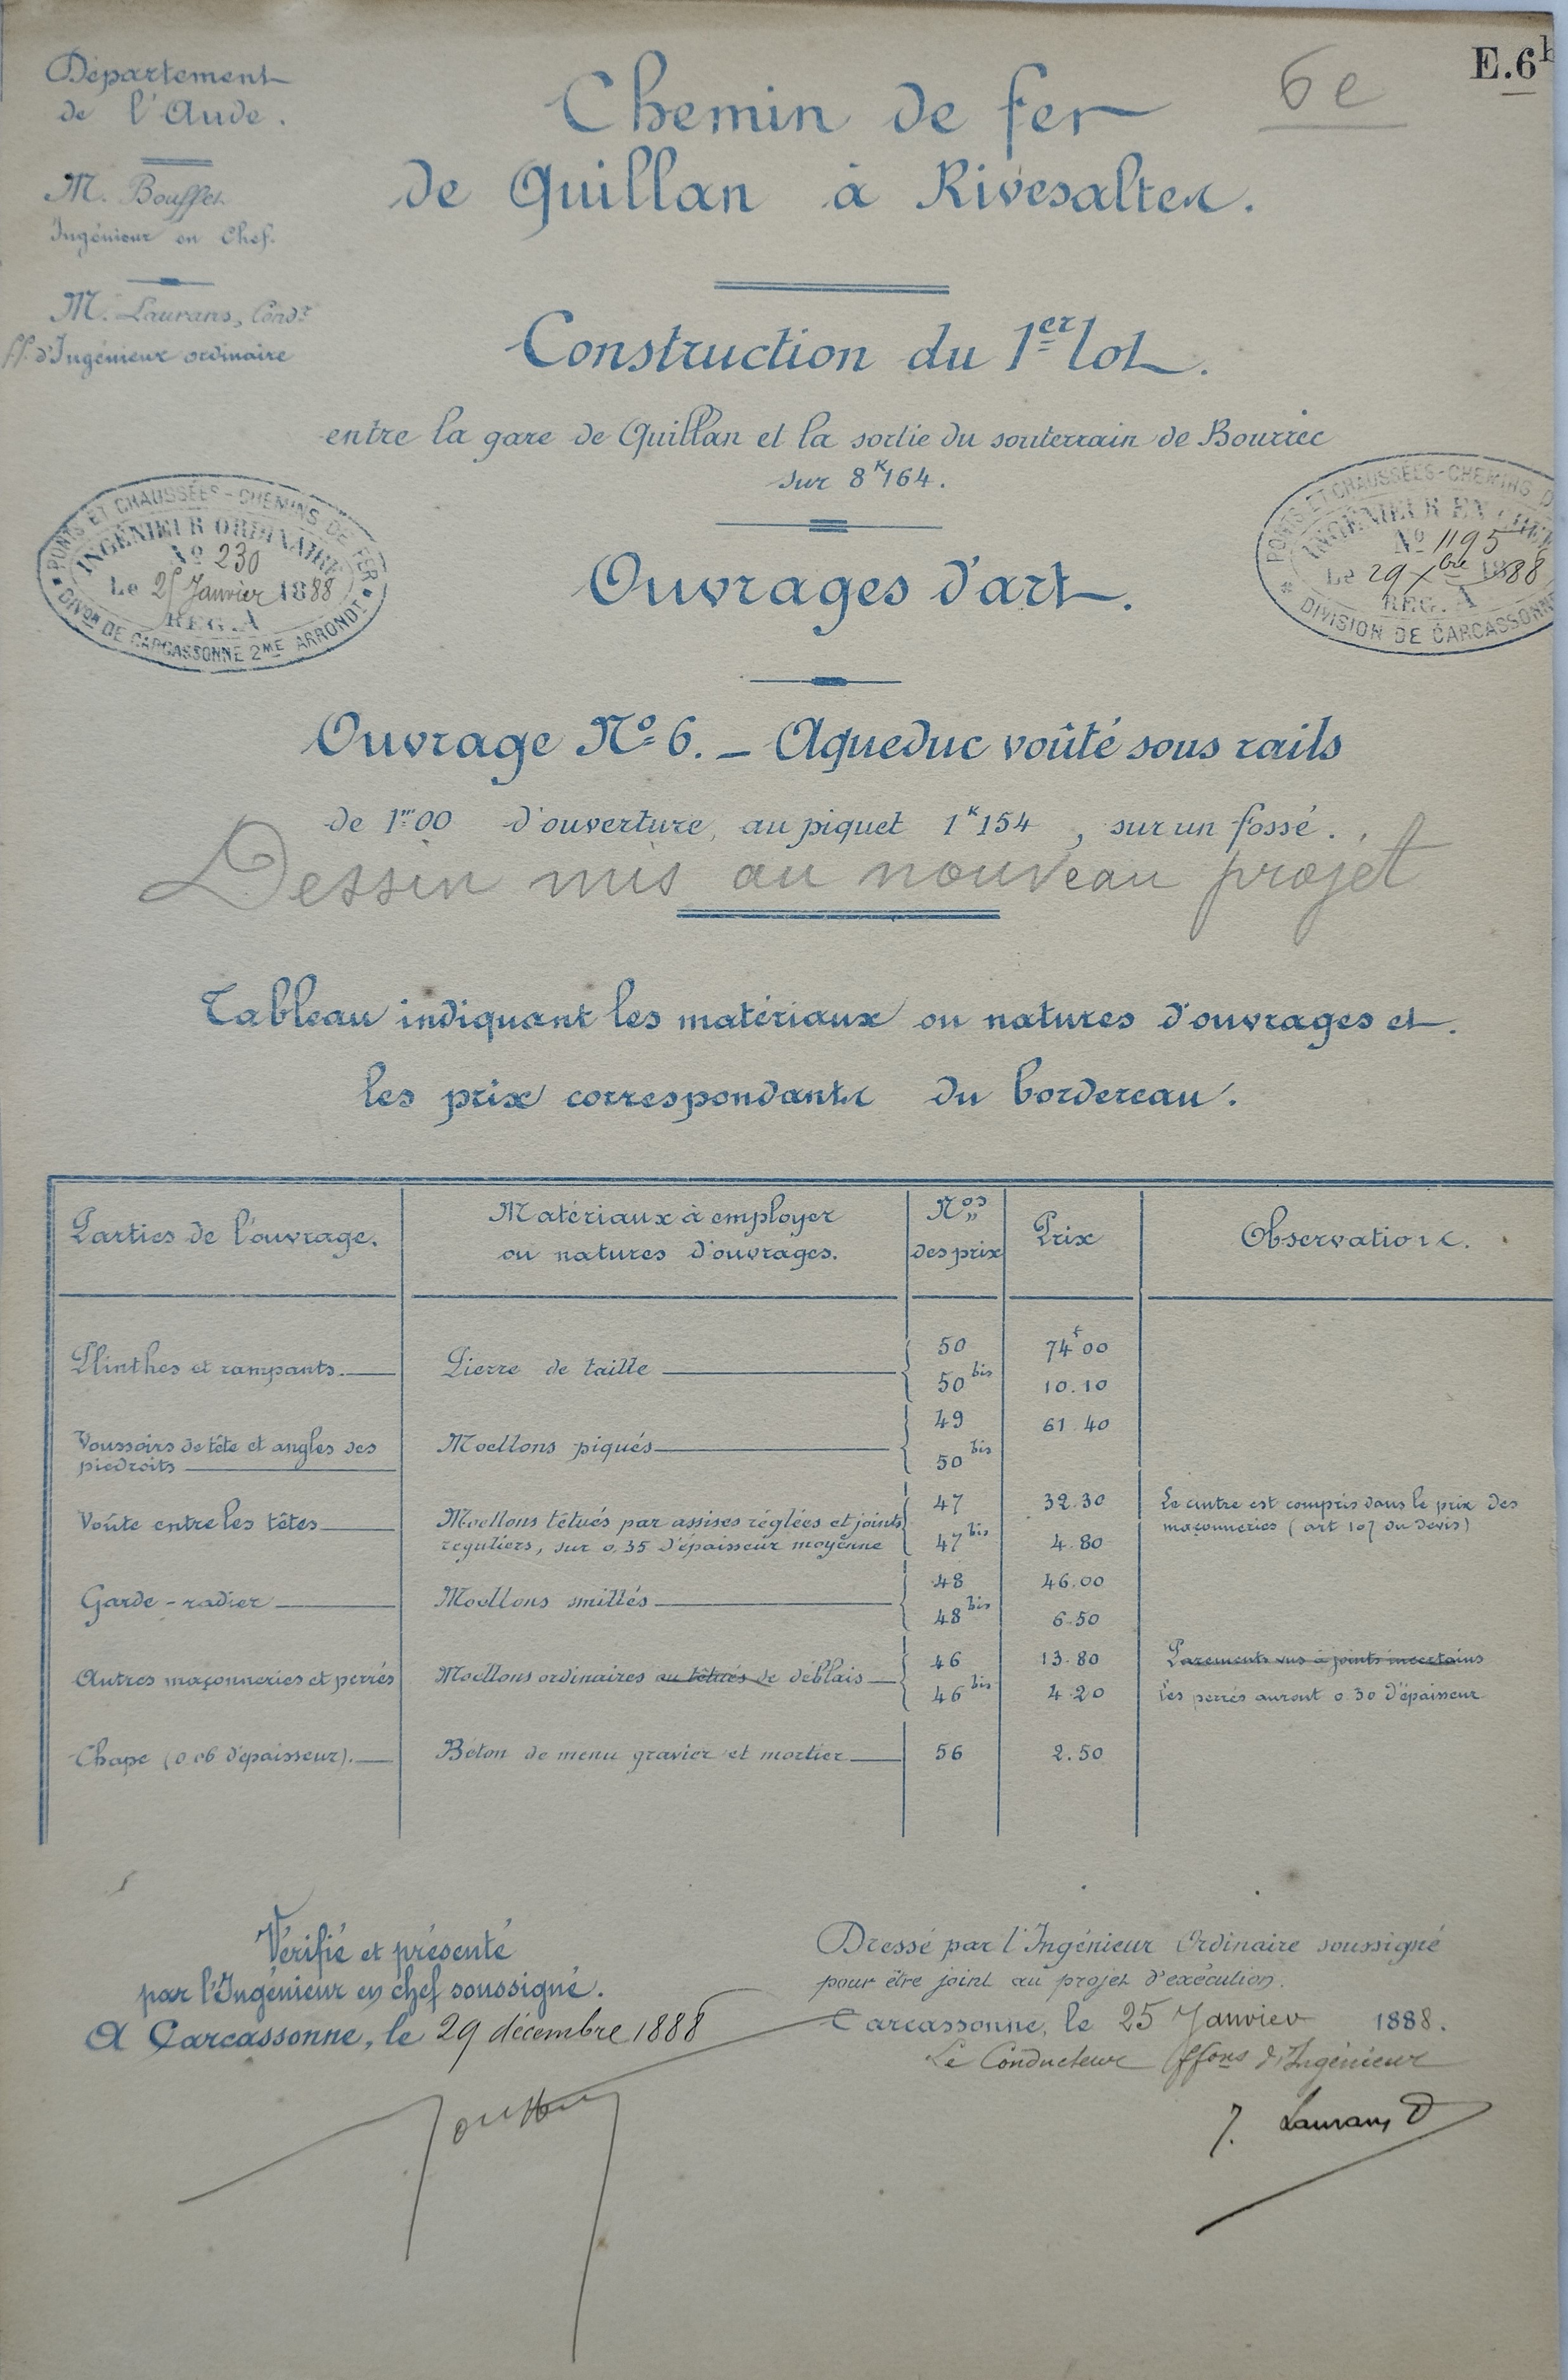 Département
de l'Aude.
M. Bouffet
Ingénieur en Chef.
M. Laurans, Cond.r
ff. d'Ingénieur ordinaire
6e
E.6b
Chemin de fer
de Quillan à Rivesaltes.
Construction du 1er lot.
entre la gare de Quillan et la sortie du souterrain de Bourrec
sur 8k164.
PONTS ET CHAUSSÉES - CHEMINS DE FER
INGÉNIEUR ORDINAIRE
No 230
Le 25 Janvier 1888
REG. A
DIVon DE CARCASSONNE 2ME ARRONDT
PONTS ET CHAUSSÉES - CHEMINS D
INGÉNIEUR EN CHEF
No 1195
Le 29 Xbre 1888
REG. A
DIVISION DE CARCASSONNE
Ouvrages d'art.
Ouvrage No 6. – Aqueduc voûté sous rails
de 1m00 d'ouverture, au piquet 1k154, sur un fossé.
Dessin mis au nouveau projet
Tableau indiquant les matériaux ou natures d'ouvrages et
les prix correspondants du bordereau.
Parties de l'ouvrage.
Matériaux à employer
ou natures d'ouvrages.
Nos
des prix
Prix
Observations.
Plinthes et rampants.
Pierre de taille
50
74f00
50 bis
10.10
Voussoirs de tête et angles des
piedroits
Moellons piqués
49
61 40
50 bis
Voûte entre les têtes
Moellons têtués par assises réglées et joints
réguliers, sur 0,35 d'épaisseur moyenne
47
32.30
47 bis
4.80
Le cintre est compris dans le prix des
maçonneries (art 107 du devis)
Garde-radier
Moellons smillés
48
46.00
48 bis
6.50
Autres maçonneries et perrés
Moellons ordinaires ou têtués de déblais
46
13.80
46 bis
4.20
Parements vus à joints incertains
Les perrés auront 0.30 d'épaisseur
Chape (0.06 d'épaisseur).
Béton de menu gravier et mortier
56
2.50
Vérifié et présenté
par l'Ingénieur en chef soussigné.
A Carcassonne, le 29 décembre 1888
Bouffet
Dressé par l'Ingénieur Ordinaire soussigné
pour être joint au projet d'exécution.
Carcassonne, le 25 Janvier 1888.
Le Conducteur ffons d'Ingénieur
J. Laurans